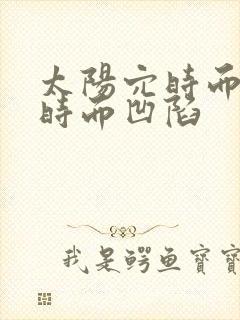 太陽穴時而
時而凹陷
我是鳄鱼寶寶